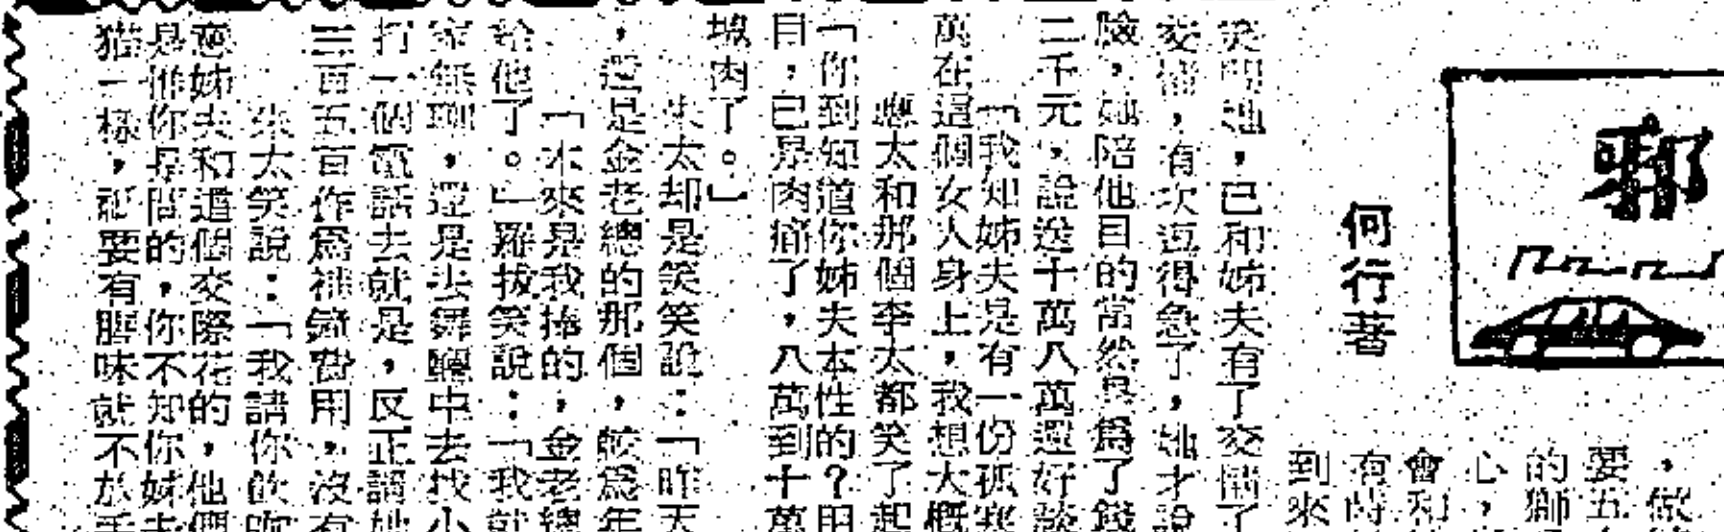 邪
何行著
，做
要五
的獅
心，
會和
有時
到來
笑明地，已和姊夫有了交情了
交情，有次逼得急了，她才說
險，她陪他目的當然是爲了錢
二千元，說送十萬八萬還好談
「我知姊夫是有一份孤寒
萬在這個女人身上，我想大概
應太和那個李太都笑了起
「你到知道你姊夫本性的？用
目，已是肉痛了，八萬到十萬
塊肉了。」
朱太却是笑笑說：「昨天
，還是金老總的那個，較爲年
「本來是我捧的，金老總
給他了。」羅拔笑說：「我就
家無聊，還是去舞廳中去找小
打一個電話去就是，反正請她
三百五百作爲補鐘費用，沒有
朱太笑說：「我請你飲咖
您姊夫和這個交際花的，他倆
是俾你是問的，你不知你姊夫
猫一樣，祗要有腥味就不放手